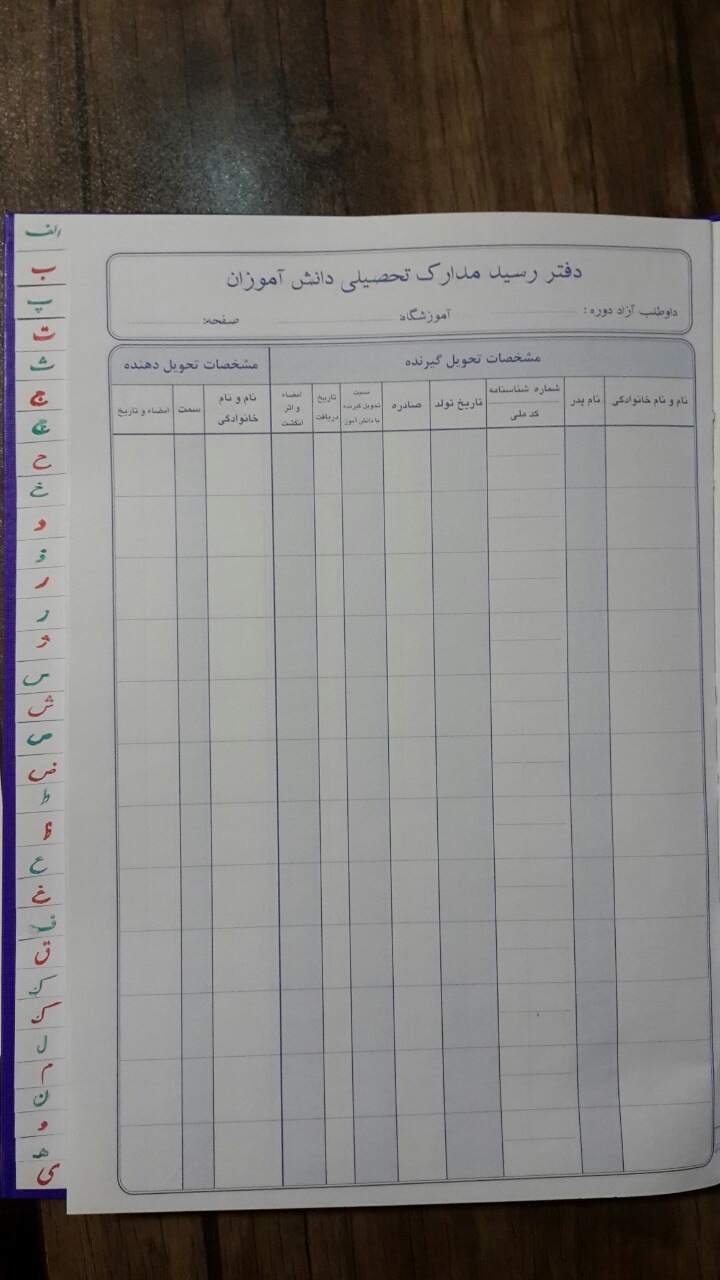 دفتر رسید مدارک تحصیلی دانش آموزان
داوطلب آزاد دوره: آموزشگاه: صفحه:
مشخصات تحویل گیرنده
نام و نام خانوادگی
نام پدر
شماره شناسنامه
کد ملی
تاریخ تولد
صادره
نسبت
تحویل گیرنده
با دانش آموز
تاریخ
دریافت
امضاء
و اثر
انگشت
مشخصات تحویل دهنده
نام و نام
خانوادگی
سمت
امضاء و تاریخ
الف
ب
پ
ت
ث
ج
چ
ح
خ
د
ذ
ر
ز
ژ
س
ش
ص
ض
ط
ظ
ع
غ
ف
ق
ک
گ
ل
م
ن
و
ه
ی